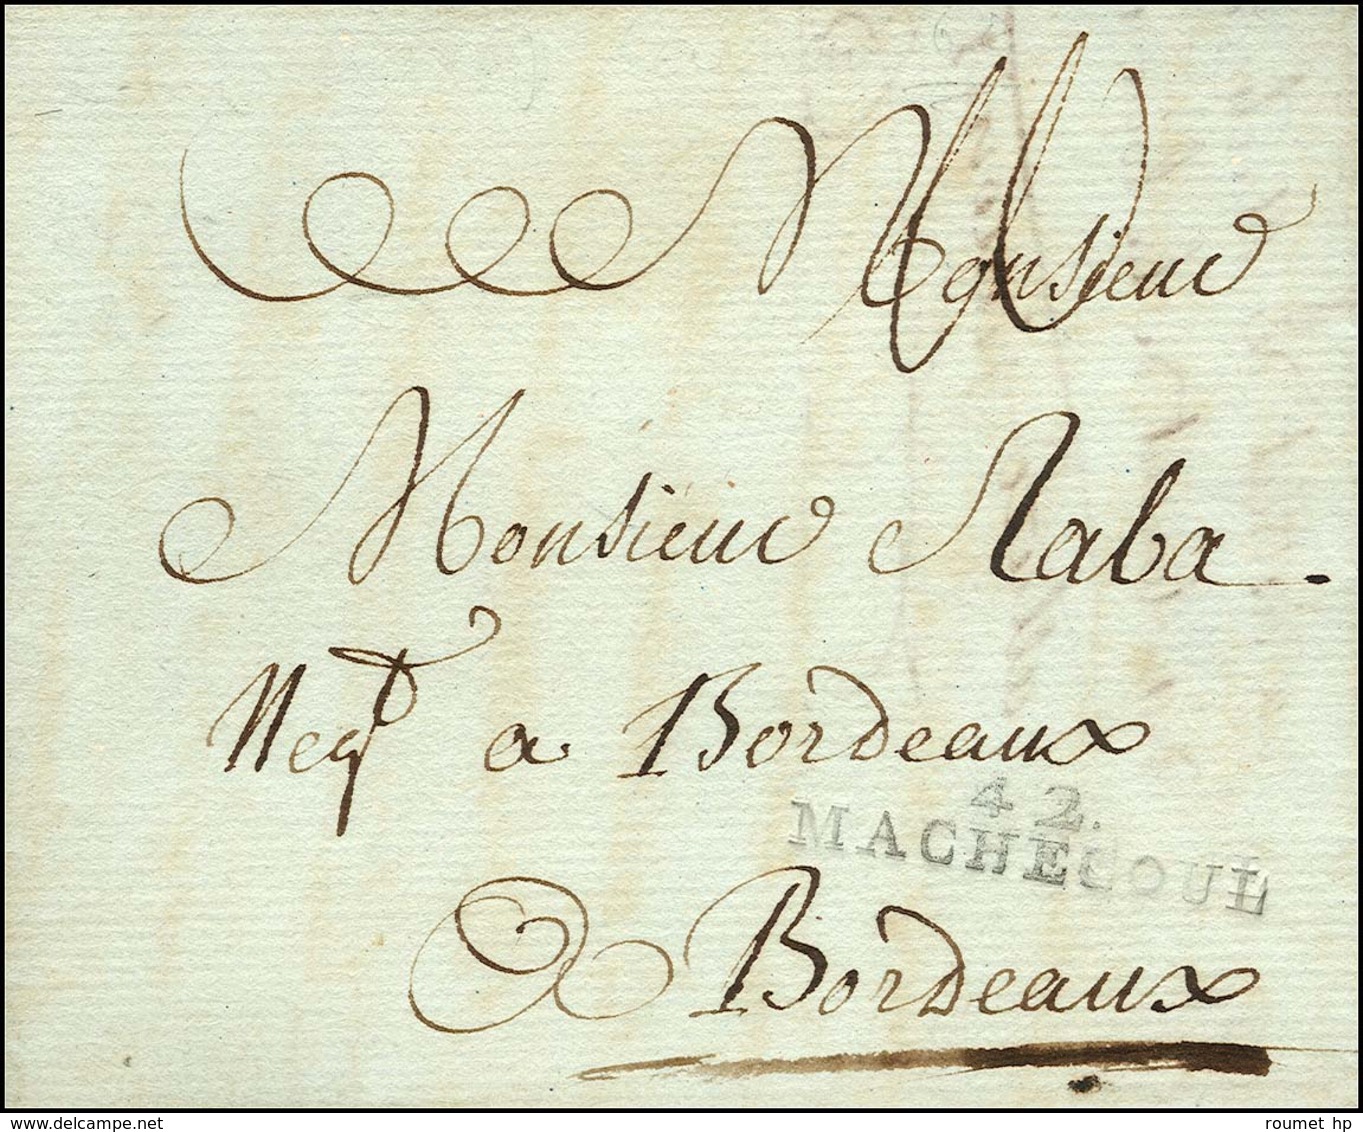 Monsieur
Monsieur Raba.
Negt a Bordeaux
42.
MACHECOUL
A Bordeaux
delcampe.net
roumet hp